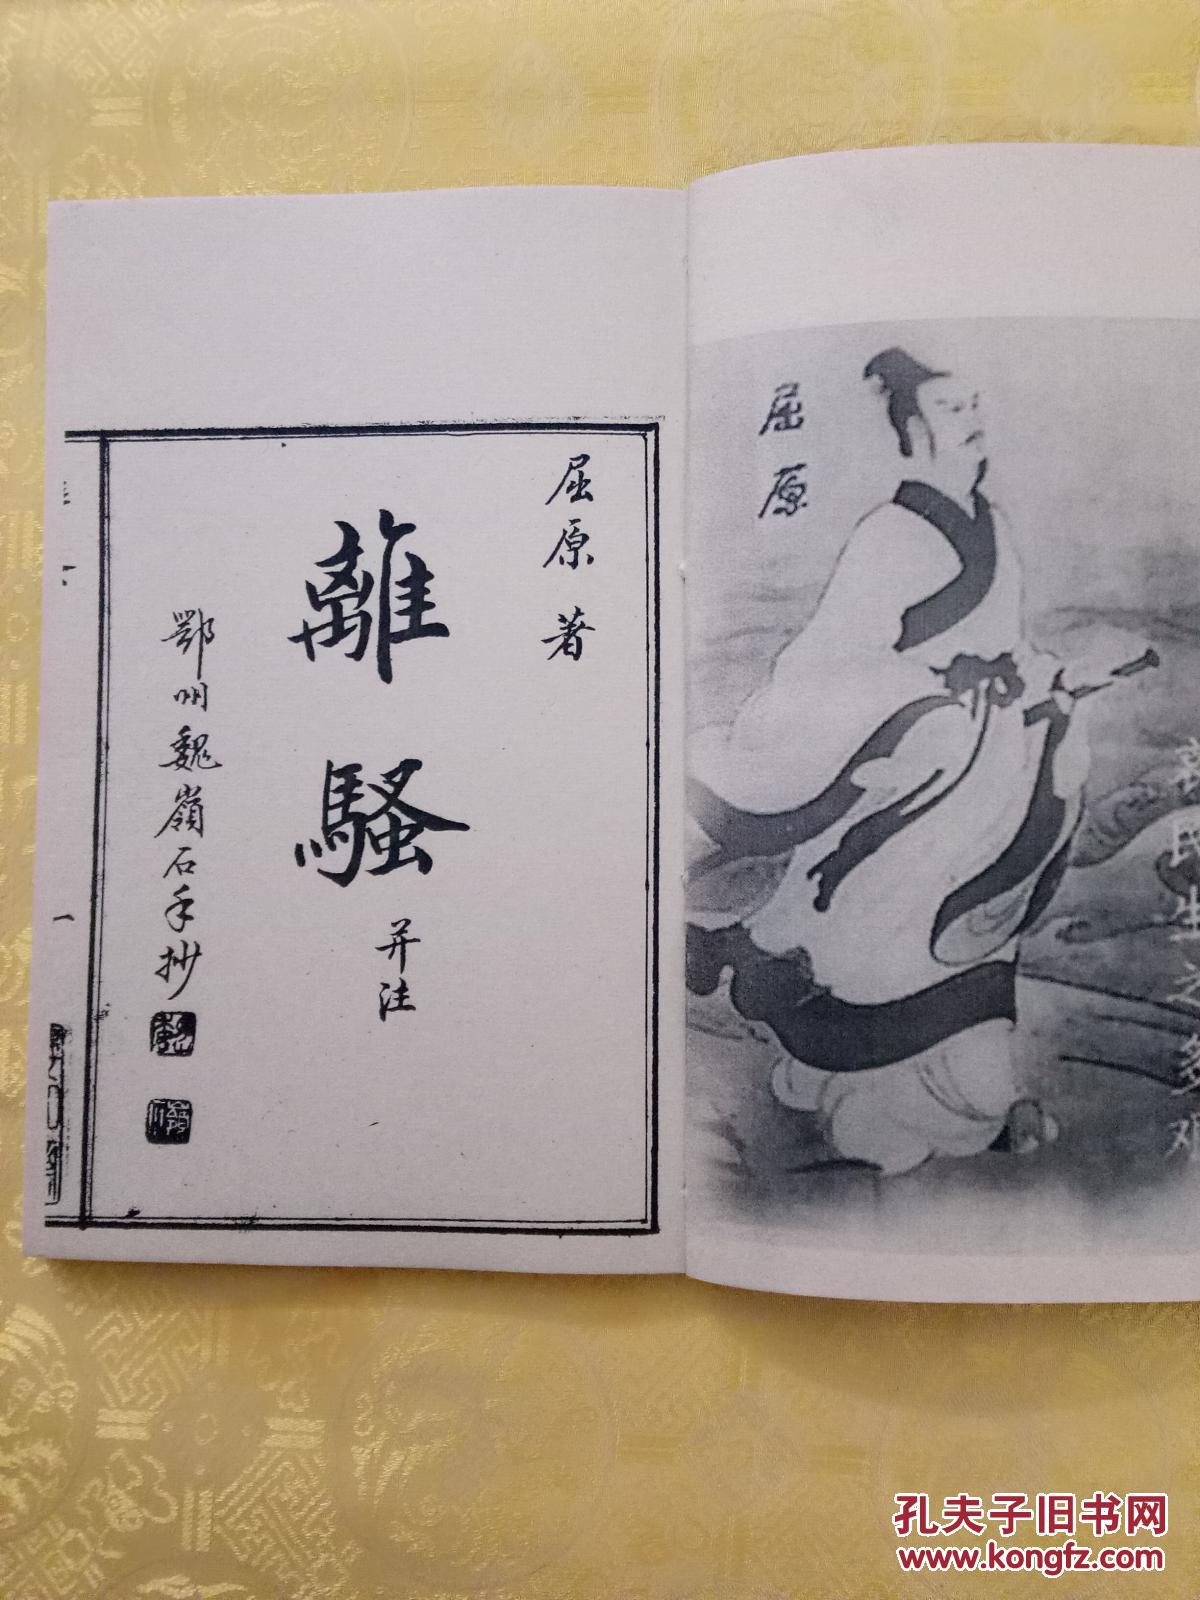 屈原
哀民生之多艰
屈原 著
離騷
并注
鄂州魏嶺石手抄
孔夫子旧书网
www.kongfz.com